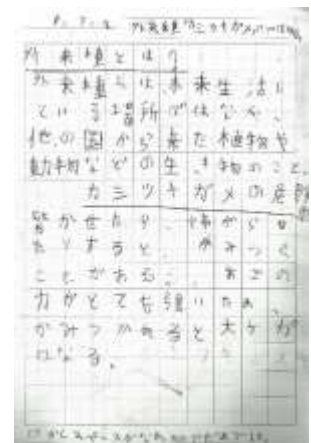 外来種とは?
外来種とは、本来生活し
ている場所ではなく、
他の国から来た植物や
動物などの生き物のこと。
カミツキガメの危険
驚かせたり、怖がらせ
たりすると、かみつく
ことがある。あごの
力がとても強いため、
かみつかれると大ケガ
になる。